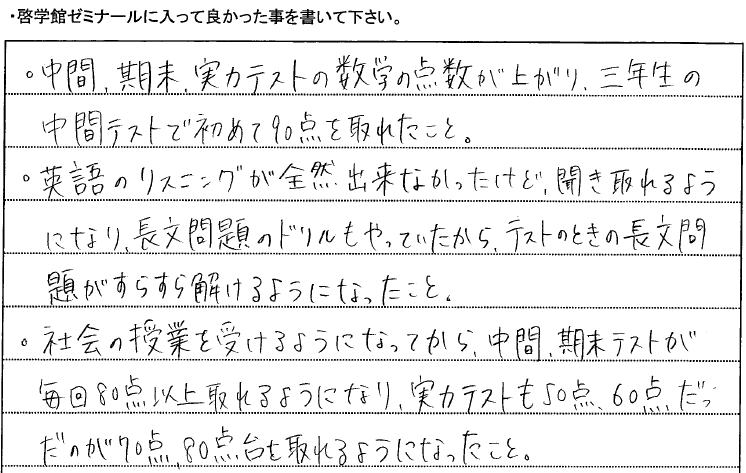 ・啓学館ゼミナールに入って良かった事を書いて下さい。
。中間、期末、実力テストの数学の点数が上がり、三年生の
中間テストで初めて90点を取れたこと。
。英語のリスニングが全然出来なかったけど、聞き取れるよう
になり、長文問題のドリルもやっていたから、テストのときの長文問
題がすらすら解けるようになったこと。
。社会の授業を受けるようになってから、中間、期末テストが
毎回80点以上取れるようになり、実力テストも50点、60点、だっ
だのが70点、80点台を取れるようになったこと。